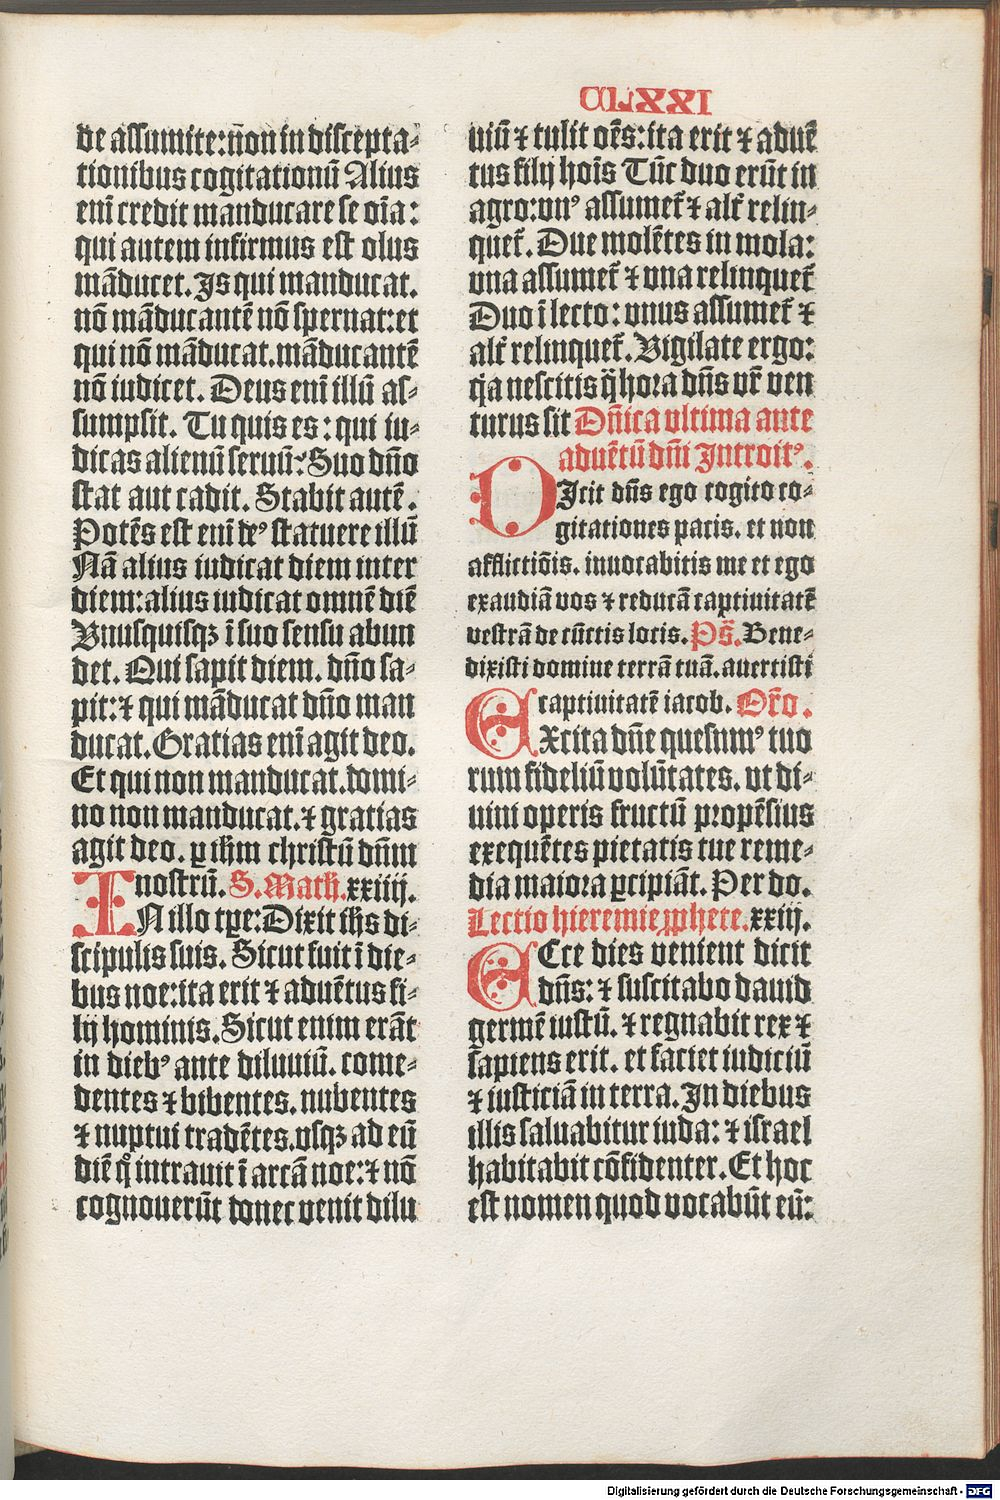 CLXXI
de assumite:nō in discepta⸗
tionibus cogitationū Alius
eni̅ credit manducare se oi̅a:
qui autem infirmus est olus
mād̄ucet. Is qui manducat.
nō māducantē nō spernat:et
qui nō māducat.māducantē
nō iudicet. Deus eni̅ illū as⸗
sumpsit. Tu quis es: qui iu⸗
dicas alienū seruū? Suo dn̄o
stat aut cadit. Stabit autē.
Potēs est eni̅ deꝰ statuere illū
Nā alius iudicat diem inter
diem:alius iudicat omnē diē
Vnusquisqꝫ ī suo sensu abun
det. Qui sapit diem. dn̄o sa⸗
pit:⁊ qui māducat dn̄o man
ducat. Gratias eni̅ agit deo.
Et qui non manducat.domi⸗
no non manducat.⁊ gratias
agit deo. ꝑ ih̄m christū dn̄m
nostrū. S. Math. xxiiij.
IN illo tꝑe:Dixit ih̄s di⸗
scipulis suis. Sicut fuit ī die⸗
bus noe:ita erit ⁊ aduētus fi⸗
lij hominis. Sicut enim erāt
in diebꝰ ante diluuiū. come⸗
dentes ⁊ bibentes. nubentes
⁊ nuptui tradētes.vsqꝫ ad eū
diē qͦ intrauit ī arcā noe:⁊ nō
cognouerūt donec venit dilu
uiū ⁊ tulit oēs:ita erit ⁊ aduē
tus filij hoi̅s Tūc duo erūt in
agro:vnꝰ assumet̄ ⁊ alt̄ relin⸗
quet̄. Due molētes in mola:
vna assumet̄ ⁊ vna relinquet̄
Duo ī lecto: vnus assumet̄ ⁊
alt̄ relinquet̄. Vigilate ergo:
q̄a nescitis q̄ hora dn̄s vr̄ ven
turus sit Dn̄ica vltima ante
aduētū dn̄i Introitꝰ.
DIcit dn̄s ego cogito co⸗
gitationes pacis. et non
afflictiōis. inuocabitis me et ego
exaudiā vos ⁊ reducā captiuitatē
vestrā de cūctis locis. Ps̄. Bene⸗
dixisti domine terrā tuā. auertisti
captiuitatē iacob. Or̄o.
EXcita dn̄e quesumꝰ tuo
rum fideliū volūtates. vt di⸗
uini operis fructū propēsius
exequētes pietatis tue reme⸗
dia maiora ꝑcipiāt. Per do.
Lectio hieremie ꝓphete. xxiij.
ECce dies venient dicit
dn̄s: ⁊ suscitabo dauid
germē iustū. ⁊ regnabit rex ⁊
sapiens erit. et faciet iudiciū
⁊ iusticiā in terra. In diebus
illis saluabitur iuda: ⁊ israel
habitabit cōfidenter. Et hoc
est nomen quod vocabūt eū:
Digitalisierung gefördert durch die Deutsche Forschungsgemeinschaft - DFG